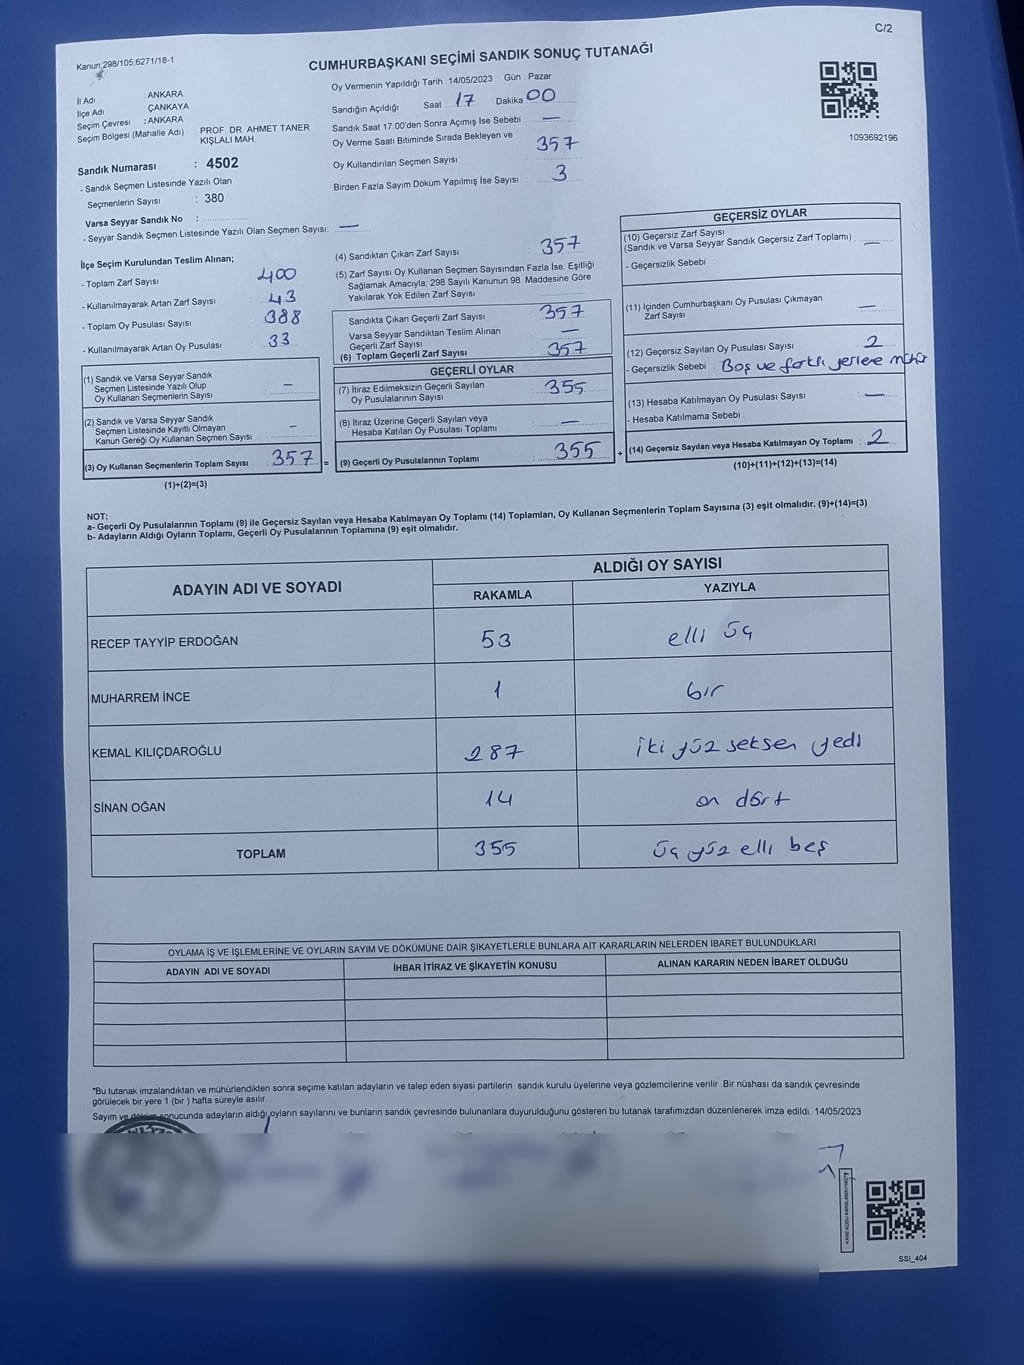 C/2
Kanun:298/105;6271/18-1
CUMHURBAŞKANI SEÇİMİ SANDIK SONUÇ TUTANAĞI
1093692196
İl Adı : ANKARA
İlçe Adı : ÇANKAYA
Seçim Çevresi : ANKARA
Seçim Bölgesi (Mahalle Adı) : PROF. DR. AHMET TANER
KIŞLALI MAH.
Sandık Numarası : 4502
- Sandık Seçmen Listesinde Yazılı Olan
Seçmenlerin Sayısı : 380
Varsa Seyyar Sandık No :
- Seyyar Sandık Seçmen Listesinde Yazılı Olan Seçmen Sayısı: —
Oy Vermenin Yapıldığı Tarih : 14/05/2023 Gün : Pazar
Sandığın Açıldığı Saat 17 Dakika 00
Sandık Saat 17.00'den Sonra Açımış İse Sebebi : —
Oy Verme Saati Bitiminde Sırada Bekleyen ve
Oy Kullandırılan Seçmen Sayısı : 357
Birden Fazla Sayım Döküm Yapılmış İse Sayısı : 3
İlçe Seçim Kurulundan Teslim Alınan;
- Toplam Zarf Sayısı : 400
- Kullanılmayarak Artan Zarf Sayısı : 43
- Toplam Oy Pusulası Sayısı : 388
- Kullanılmayarak Artan Oy Pusulası : 33
(1) Sandık ve Varsa Seyyar Sandık
Seçmen Listesinde Yazılı Olup
Oy Kullanan Seçmenlerin Sayısı : —
(2) Sandık ve Varsa Seyyar Sandık
Seçmen Listesinde Kayıtlı Olmayan
Kanun Gereği Oy Kullanan Seçmen Sayısı : —
(3) Oy Kullanan Seçmenlerin Toplam Sayısı : 357 =
(1)+(2)=(3)
(4) Sandıktan Çıkan Zarf Sayısı : 357
(5) Zarf Sayısı Oy Kullanan Seçmen Sayısından Fazla İse, Eşitliği
Sağlamak Amacıyla; 298 Sayılı Kanunun 98. Maddesine Göre
Yakılarak Yok Edilen Zarf Sayısı :
Sandıkta Çıkan Geçerli Zarf Sayısı : 357
Varsa Seyyar Sandıktan Teslim Alınan
Geçerli Zarf Sayısı : —
(6) Toplam Geçerli Zarf Sayısı : 357
GEÇERLİ OYLAR
(7) İtiraz Edilmeksizin Geçerli Sayılan
Oy Pusulalarının Sayısı : 355
(8) İtiraz Üzerine Geçerli Sayılan veya
Hesaba Katılan Oy Pusulası Toplamı : —
(9) Geçerli Oy Pusulalarının Toplamı : 355 +
GEÇERSİZ OYLAR
(10) Geçersiz Zarf Sayısı
(Sandık ve Varsa Seyyar Sandık Geçersiz Zarf Toplamı) : —
- Geçersizlik Sebebi :
(11) İçinden Cumhurbaşkanı Oy Pusulası Çıkmayan
Zarf Sayısı : —
(12) Geçersiz Sayılan Oy Pusulası Sayısı : 2
- Geçersizlik Sebebi : Boş ve farklı yerlere mühür
(13) Hesaba Katılmayan Oy Pusulası Sayısı : —
- Hesaba Katılmama Sebebi :
(14) Geçersiz Sayılan veya Hesaba Katılmayan Oy Toplamı : 2
(10)+(11)+(12)+(13)=(14)
NOT:
a- Geçerli Oy Pusulalarının Toplamı (9) ile Geçersiz Sayılan veya Hesaba Katılmayan Oy Toplamı (14) Toplamları, Oy Kullanan Seçmenlerin Toplam Sayısına (3) eşit olmalıdır. (9)+(14)=(3)
b- Adayların Aldığı Oyların Toplamı, Geçerli Oy Pusulalarının Toplamına (9) eşit olmalıdır.
ADAYIN ADI VE SOYADI ALDIĞI OY SAYISI
RAKAMLA YAZIYLA
RECEP TAYYİP ERDOĞAN 53 elli üç
MUHARREM İNCE 1 bir
KEMAL KILIÇDAROĞLU 287 iki yüz seksen yedi
SİNAN OĞAN 14 on dört
TOPLAM 355 üç yüz elli beş
OYLAMA İŞ VE İŞLEMLERİNE VE OYLARIN SAYIM VE DÖKÜMÜNE DAİR ŞİKAYETLERLE BUNLARA AİT KARARLARIN NELERDEN İBARET BULUNDUKLARI
ADAYIN ADI VE SOYADI İHBAR İTİRAZ VE ŞİKAYETİN KONUSU ALINAN KARARIN NEDEN İBARET OLDUĞU
*Bu tutanak imzalandıktan ve mühürlendikten sonra seçime katılan adayların ve talep eden siyasi partilerin sandık kurulu üyelerine veya gözlemcilerine verilir .Bir nüshası da sandık çevresinde
görülecek bir yere 1 (bir ) hafta süreyle asılır.
Sayım ve döküm sonucunda adayların aldığı oyların sayılarını ve bunların sandık çevresinde bulunanlara duyurulduğunu gösteren bu tutanak tarafımızdan düzenlenerek imza edildi. 14/05/2023
SSI_404